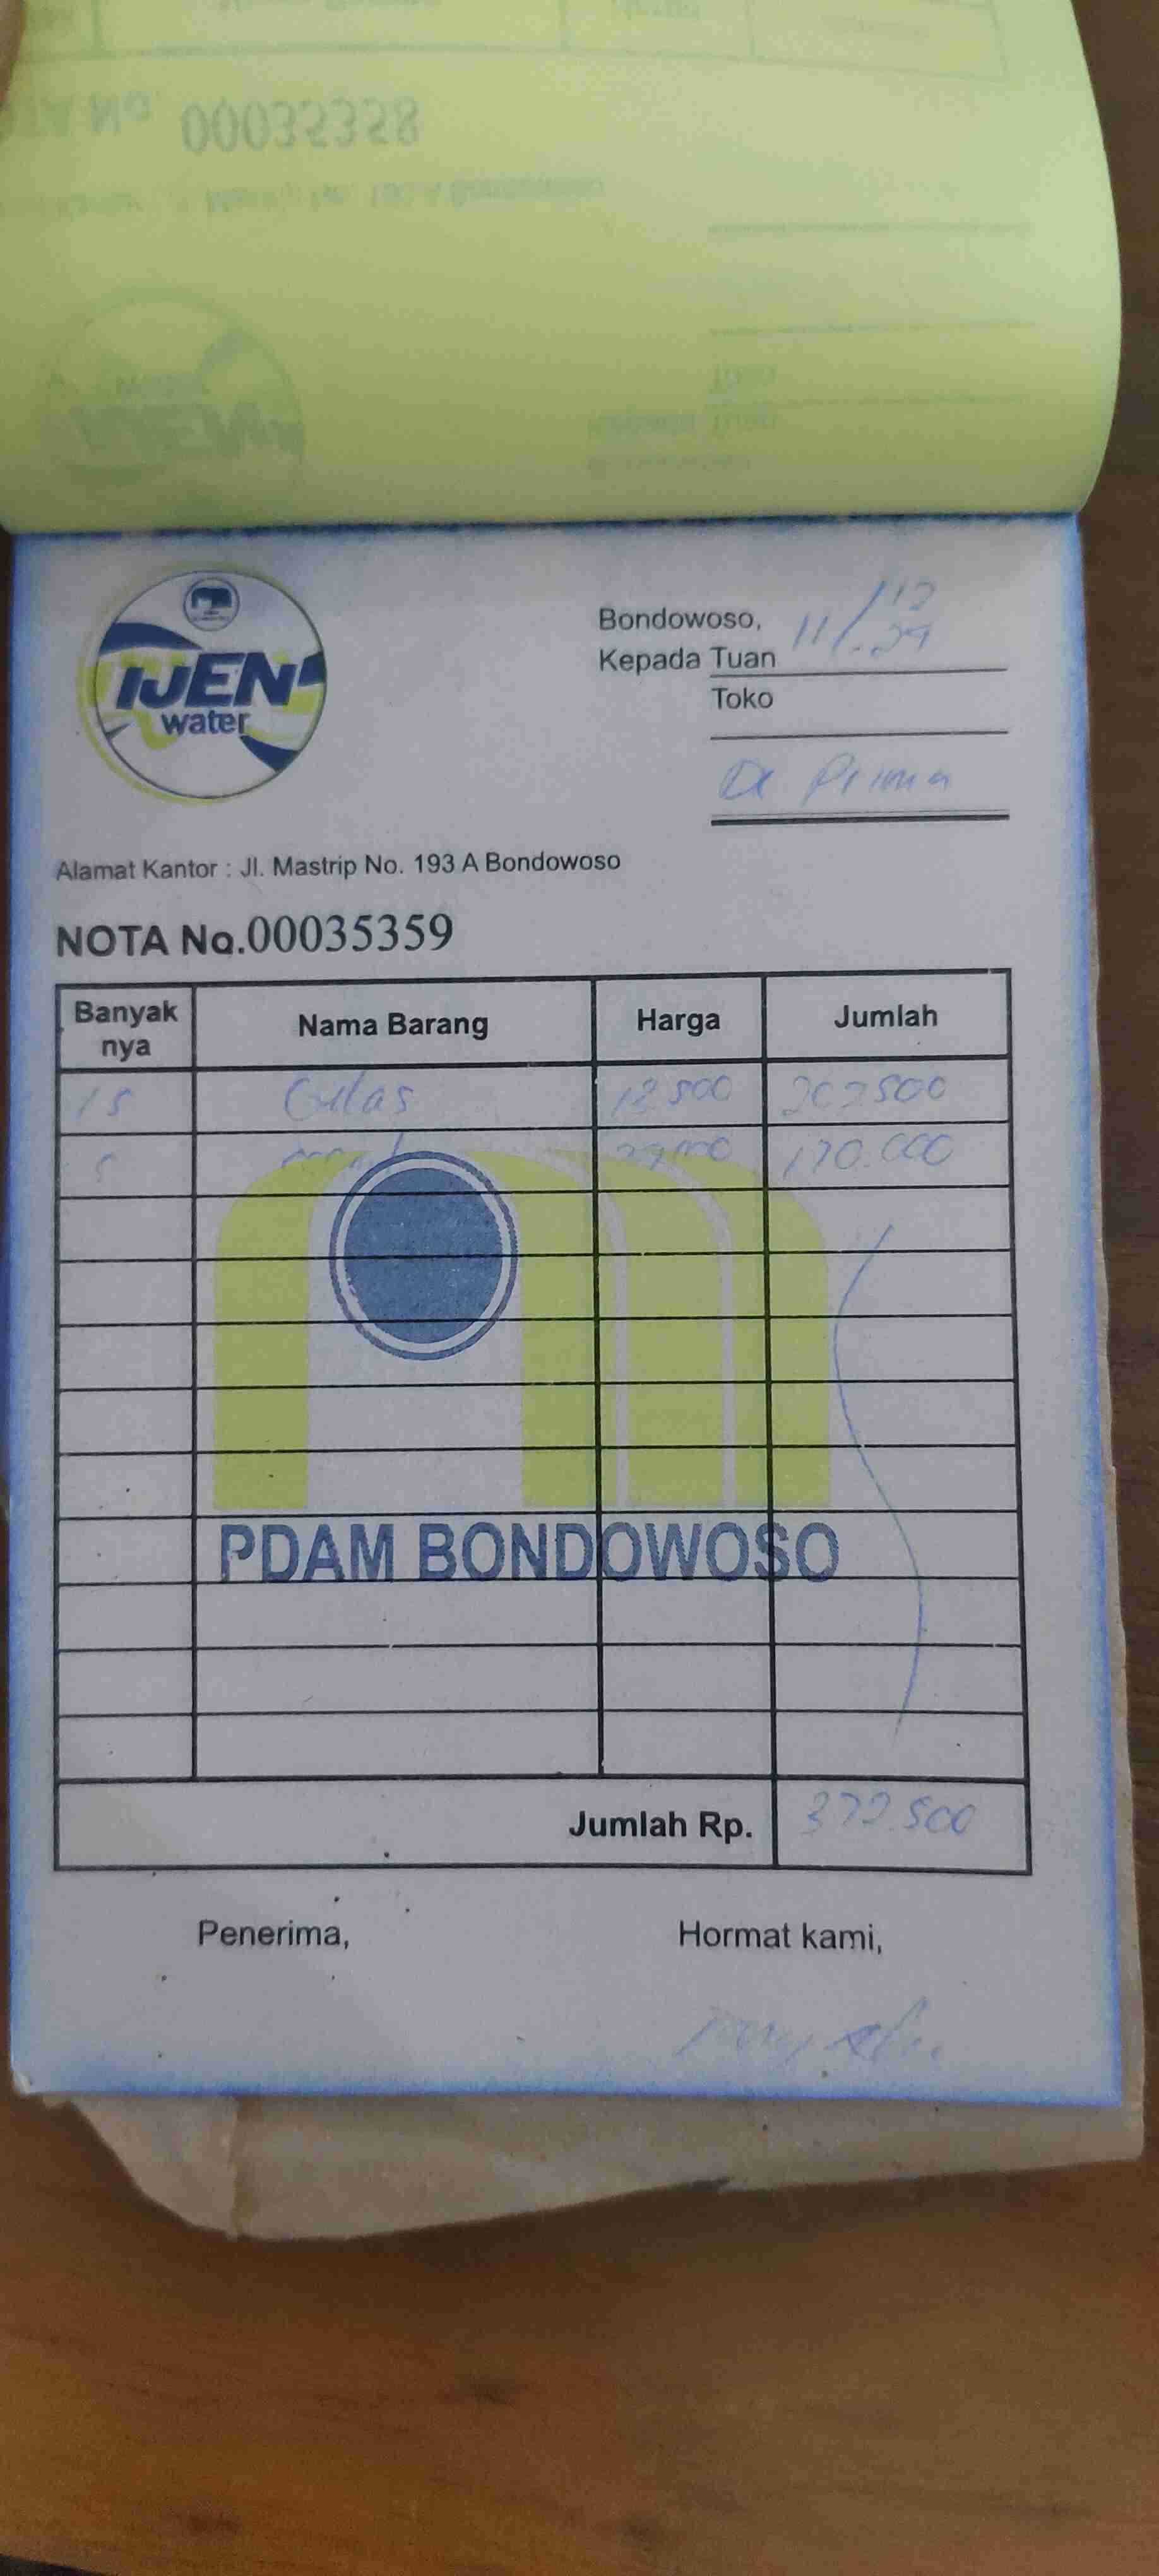 00035358
IJEN
water
Bondowoso, 11/12
Kepada Tuan
Toko
Alamat Kantor : Jl. Mastrip No. 193 A Bondowoso
NOTA No.00035359
Banyak nya Nama Barang Harga Jumlah
15 Gelas 13 500 202 500
5 170.000
PDAM BONDOWOSO
Jumlah Rp. 372.500
Penerima, Hormat kami,